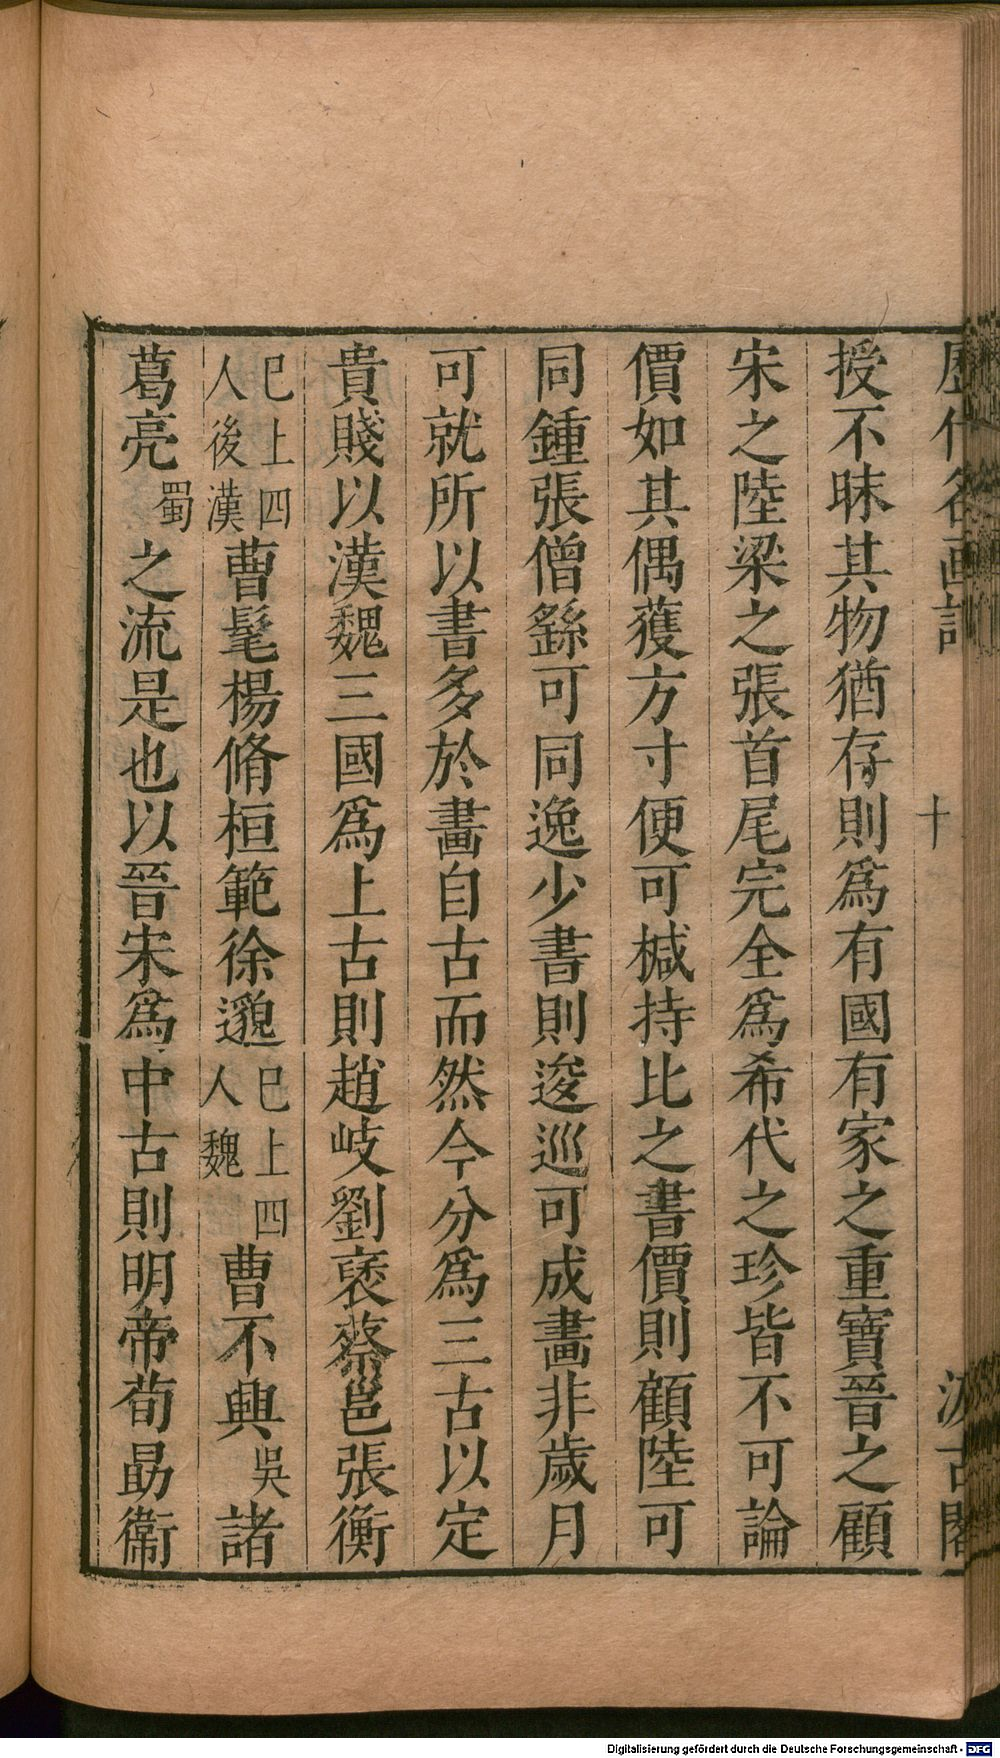 歷代名畫記 十 汲古閣
授不昧其物猶存則爲有國有家之重寶晉之顧
宋之陸梁之張首尾完全爲希代之珍皆不可論
價如其偶獲方寸便可椷持比之書價則顧陸可
同鍾張僧繇可同逸少書則逡巡可成畫非歲月
可就所以書多於畫自古而然今分爲三古以定
貴賤以漢魏三國爲上古則趙岐劉褎蔡邕張衡
巳上四人後漢曹髦楊脩桓範徐邈巳上四人魏曹不興吳諸
葛亮蜀之流是也以晉宋爲中古則明帝荀勗衞
Digitalisierung gefördert durch die Deutsche Forschungsgemeinschaft - DFG